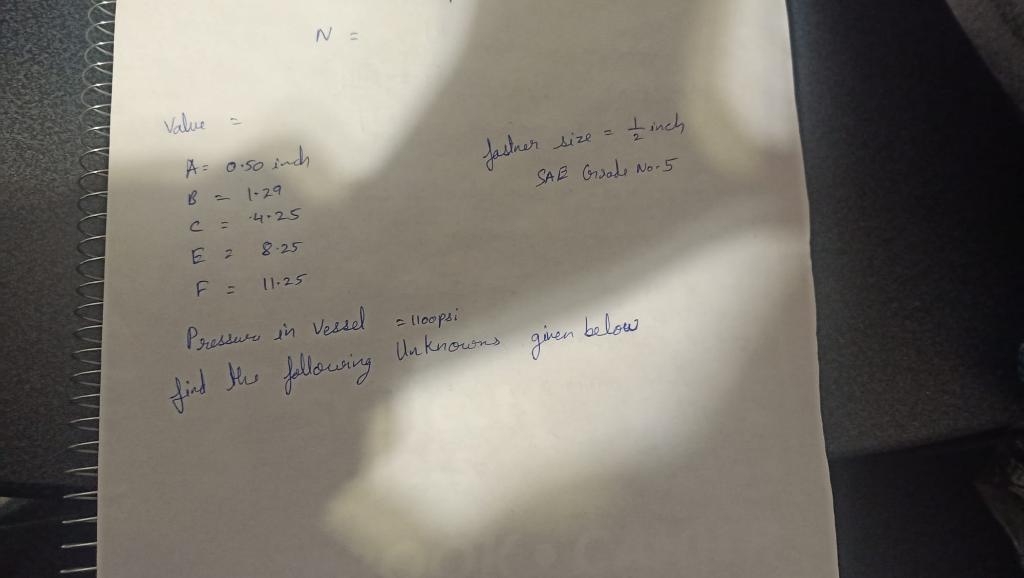 N =
Value =
A = 0.50 inch
B = 1.29
C = 4.25
E = 8.25
F = 11.25
fastner size = 1/2 inch
SAE Grade No. 5
Pressure in Vessel = 1100psi
find the following Unknowns given below